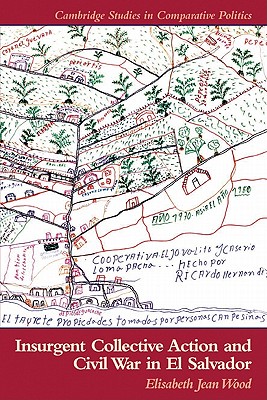 Cambridge Studies in Comparative Politics
AÑO 1970. ASIA EL AÑO 1980
COOPERATIVA EL JOVALITO JENSERIO
LOMA PACHA... HECHO POR
RICARDO HERNANDE
EL TAYRETE PROPIEDADES TOMADAS POR PERSONAS CANPESINAS
Insurgent Collective Action and
Civil War in El Salvador
Elisabeth Jean Wood